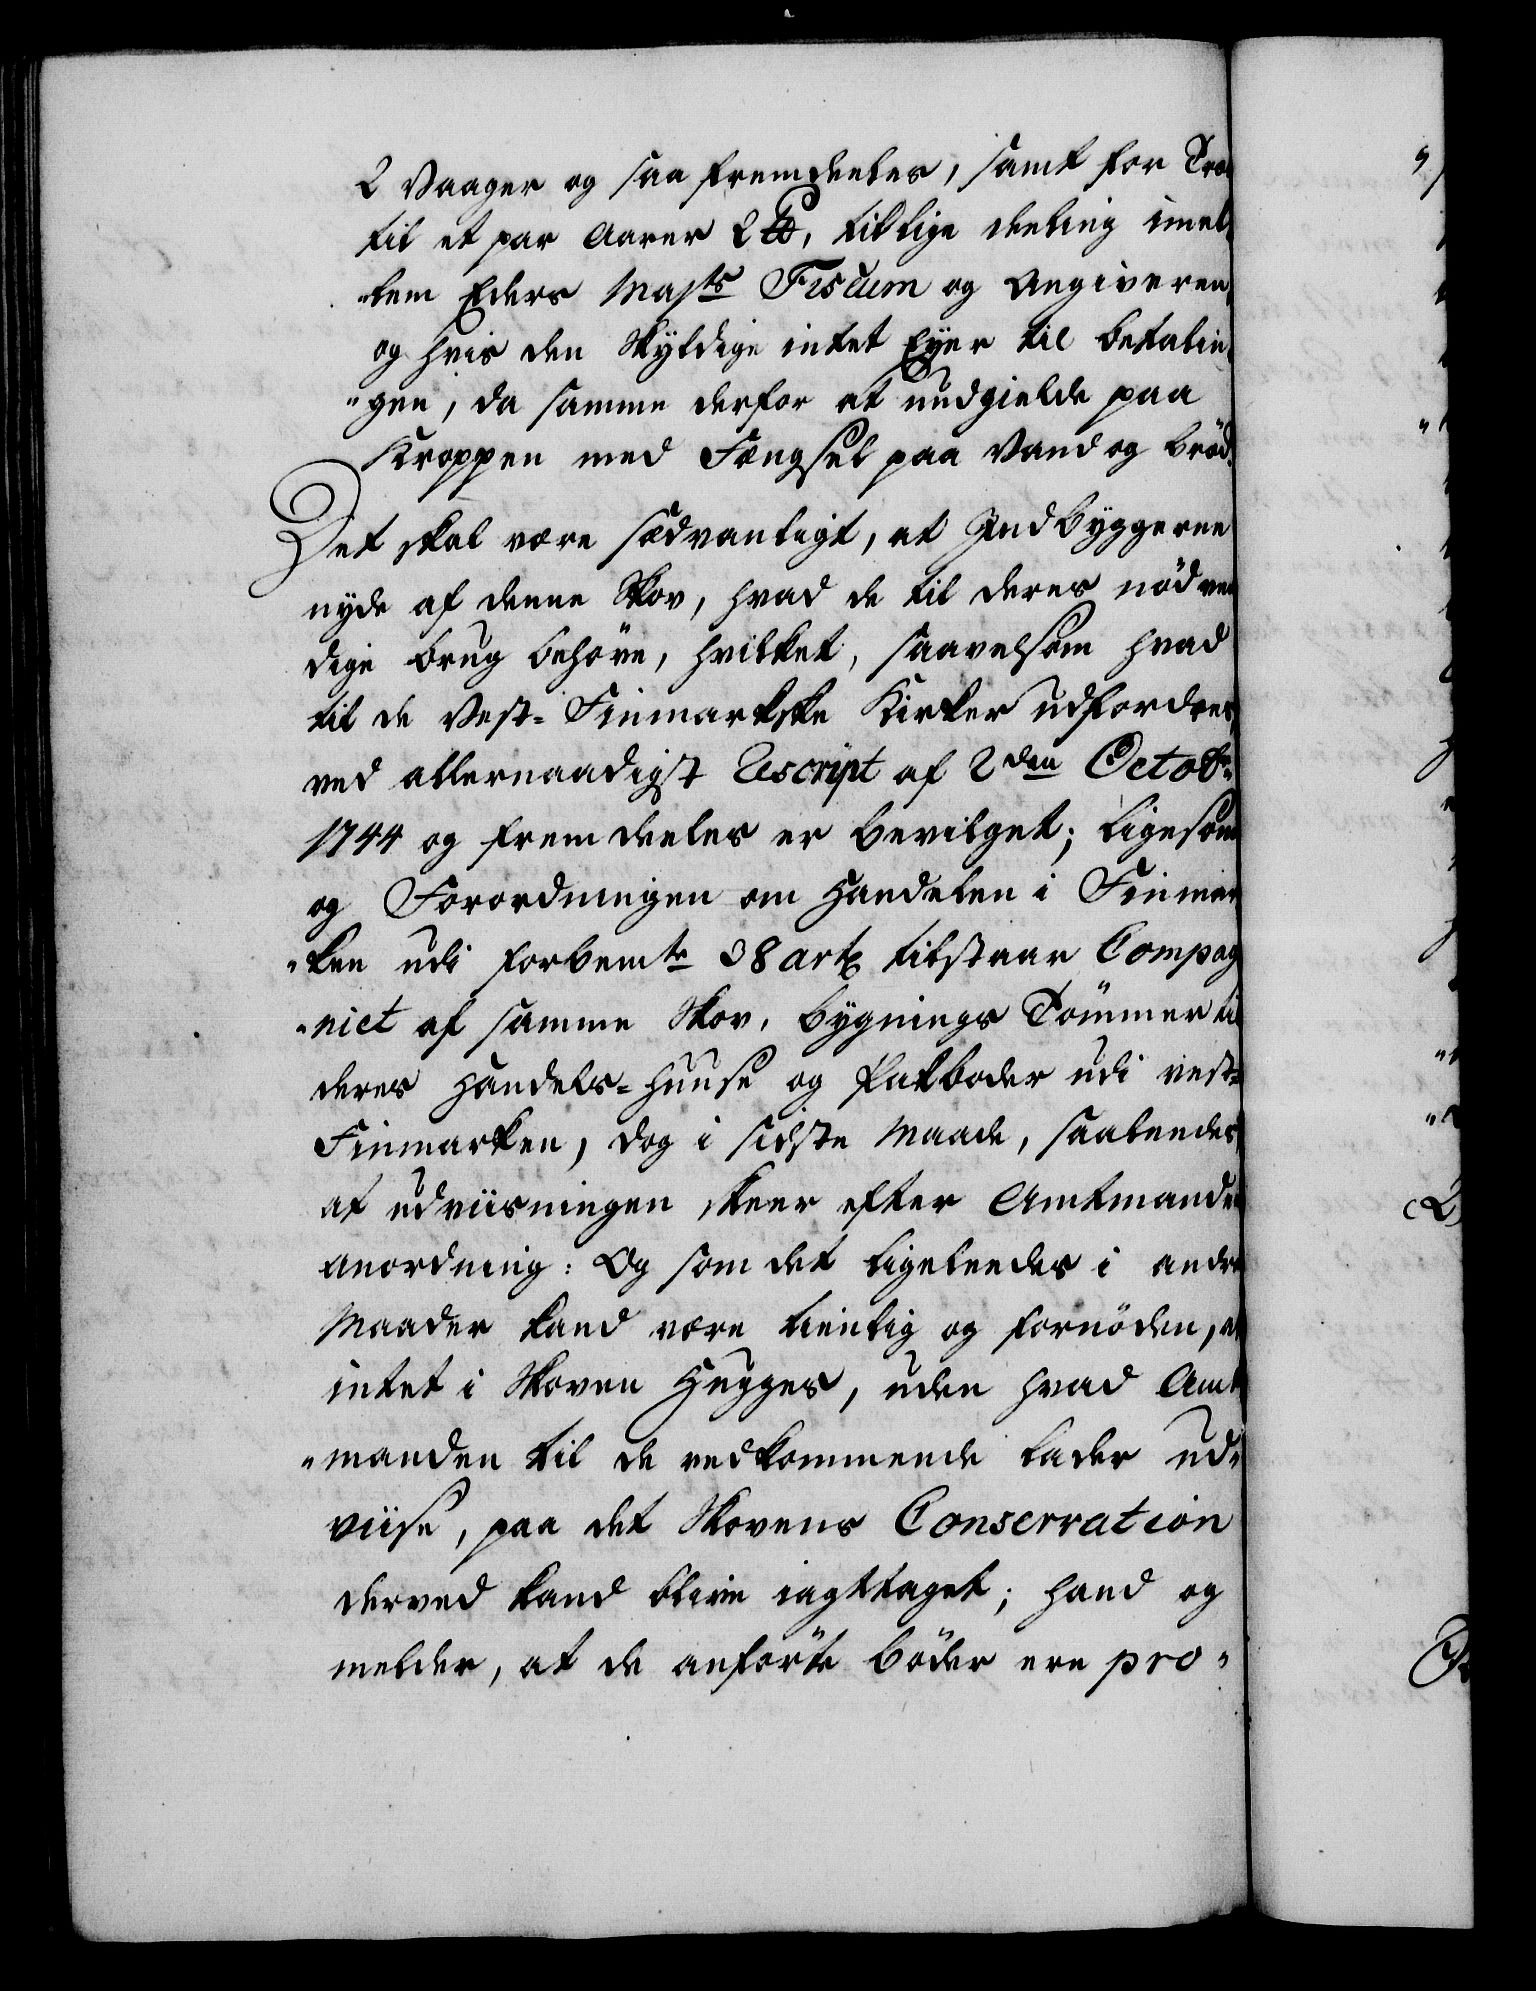 2 Vaager og saa fremdeeles, samt for Træ
til et par Aarer 2 ℔, til lige deeling imel„
„lem Eders Majts Fiscum og Angiveren
og hvis den Skyldige intet Eyer til betalin„
„gen, da samme derfor at undgielde paa
Kroppen med Fængsel paa Vand og brød.
Det skal være sædvanligt, at Indbyggerne
nyde af denne Skov, hvad de til deres nødven
dige brug behøve, hvilket, saavelsom hvad
til de Vest-Finmarkske Kirker udfordres,
ved allernaadigst Rescript af 2den Octobr
1744 og fremdeeles er bevilget; ligesom
og Forordningen om Handelen i Finmar
„ken udi forbemte 38 art tilstaar Compag
„niet af samme Skov, bygnings Tømmer til
deres Handels-Huuse og Pakboder udi vest-
Finmarken, dog i sidste Maade, saaleedes,
at udviisningen skeer efter Amtmandens
anordning: Og som det ligeleedes i andre
Maader kand være tienlig og fornøden, at
intet i Skoven Hugges, uden hvad Amt
„manden til de vedkommende lader ud„
viise, paa det Skovens Conservation
derved kand blive iagttaget; hand og
melder, at de anførte bøder ere pro„